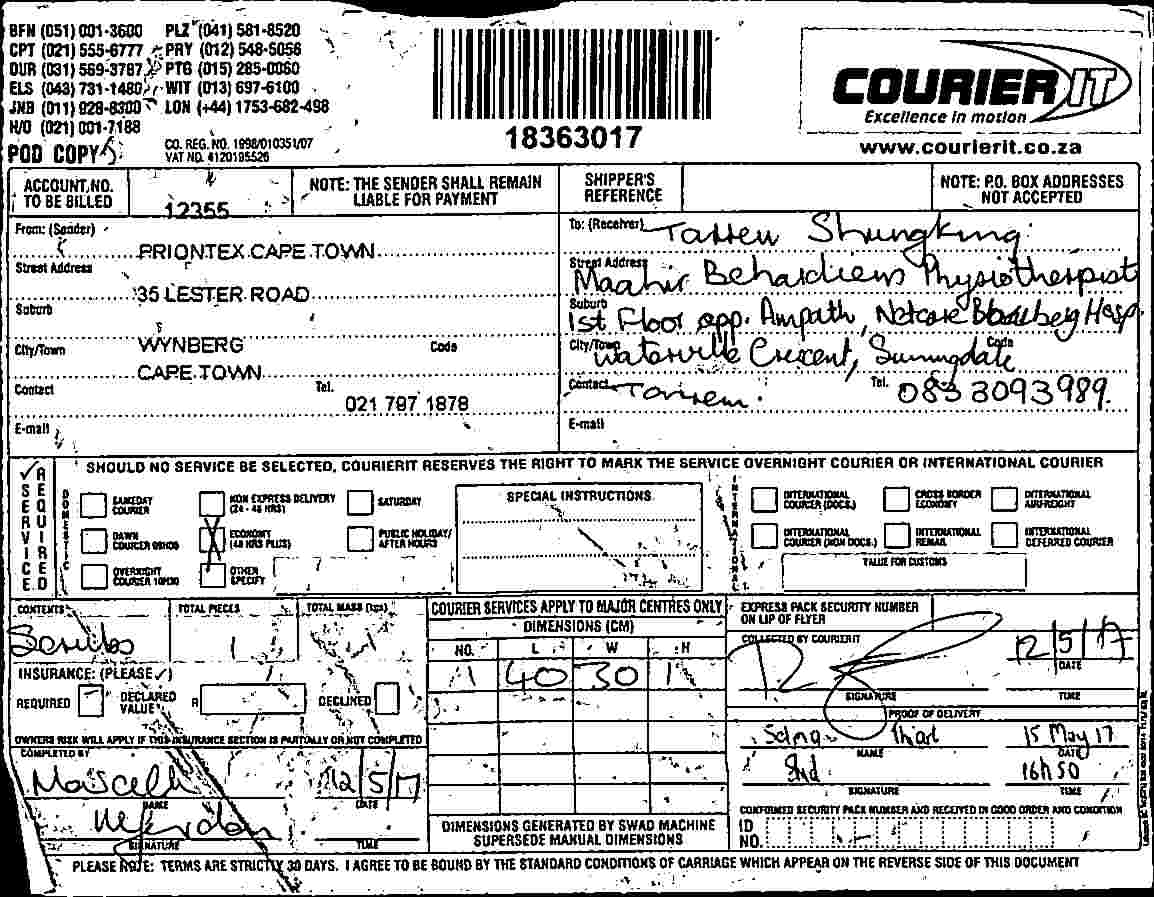 BFN (051) 001-3600 PLZ (041) 581-8520
CPT (021) 555-6777 PRY (012) 548-5056
DUR (031) 569-3787 PTG (015) 285-0060
ELS (043) 731-1480 WIT (013) 697-6100
JNB (011) 928-8300 LON (+44) 1753-682-498
H/O (021) 001-7188
POD COPY
CO. REG. NO. 1998/010351/07
VAT NO. 4120195526
18363017
COURIER IT
Excellence in motion
www.courierit.co.za
ACCOUNT NO. TO BE BILLED
12355
NOTE: THE SENDER SHALL REMAIN LIABLE FOR PAYMENT
SHIPPER'S REFERENCE
NOTE: P.O. BOX ADDRESSES NOT ACCEPTED
From: (Sender)
PRIONTEX CAPE TOWN
Street Address
35 LESTER ROAD
Suburb
WYNBERG
City/Town Code
CAPE TOWN
Contact Tel.
021 797 1878
E-mail
To: (Receiver) Shungking
Street Address Maahir Behardiens Physiotherpist
Suburb
1st Floor opp. Ampath, Netcare Blaauberg Hosp.
City/Town Code
Waterville Crescent, Sunningdale
Contact Tel. 083 3093989.
E-mail
SHOULD NO SERVICE BE SELECTED, COURIERIT RESERVES THE RIGHT TO MARK THE SERVICE OVERNIGHT COURIER OR INTERNATIONAL COURIER
SERVICE REQUIRED
DOMESTIC
SAMEDAY COURIER
NON EXPRESS DELIVERY (24 - 48 HRS)
SATURDAY
DAWN COURIER 09H00
ECONOMY (48 HRS PLUS)
PUBLIC HOLIDAY/ AFTER HOURS
OVERNIGHT COURIER 10H30
OTHER SPECIFY
SPECIAL INSTRUCTIONS
INTERNATIONAL
INTERNATIONAL COURIER (DOCS.)
CROSS BORDER ECONOMY
INTERNATIONAL AIRFREIGHT
INTERNATIONAL COURIER (NON DOCS.)
INTERNATIONAL REMAIL
INTERNATIONAL DEFERRED COURIER
VALUE FOR CUSTOMS
CONTENTS TOTAL PIECES TOTAL MASS (kgs)
Scrubs 1 1
INSURANCE: (PLEASE ✓)
REQUIRED DECLARED VALUE R DECLINED
OWNERS RISK WILL APPLY IF THIS INSURANCE SECTION IS PARTIALLY OR NOT COMPLETED
COMPLETED BY
12/5/17
NAME DATE
SIGNATURE TIME
COURIER SERVICES APPLY TO MAJOR CENTRES ONLY
DIMENSIONS (CM)
NO. L W H
1 40 30 1
DIMENSIONS GENERATED BY SWAD MACHINE SUPERSEDE MANUAL DIMENSIONS
EXPRESS PACK SECURITY NUMBER ON LIP OF FLYER
COLLECTED BY COURIERIT
12/5/17
DATE
SIGNATURE TIME
PROOF OF DELIVERY
15 May 17
NAME DATE
16h50
SIGNATURE TIME
CONFIRMED SECURITY PACK NUMBER AND RECEIVED IN GOOD ORDER AND CONDITION
ID NO.
PLEASE NOTE: TERMS ARE STRICTLY 30 DAYS. I AGREE TO BE BOUND BY THE STANDARD CONDITIONS OF CARRIAGE WHICH APPEAR ON THE REVERSE SIDE OF THIS DOCUMENT